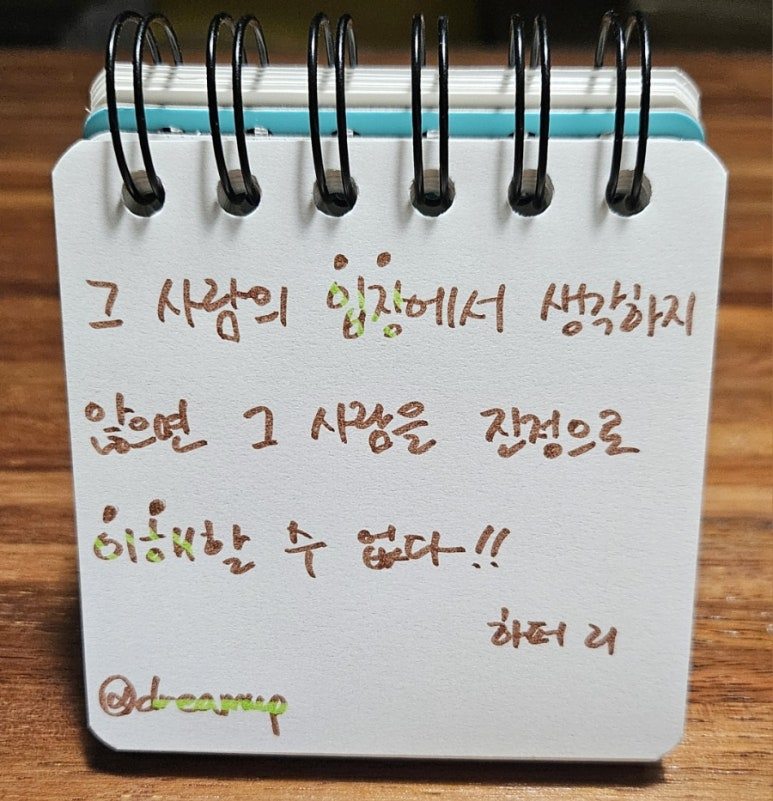 그 사람의 입장에서 생각하지
않으면 그 사람을 진정으로
이해할 수 없다!!
하퍼 리
@dreamup